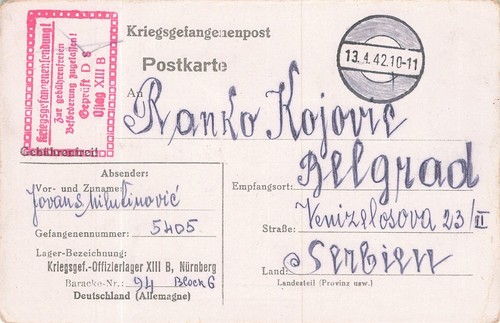 Kriegsgefangenensendung!
Zur gebührenfreien
Beförderung zugelassen!
Geprüft D 8
Oflag XIII B
Gebührenfrei!
Kriegsgefangenenpost
Postkarte
13.4.42.10-11
An
Ranko Kojović
Empfangsort: Belgrad
Straße: Venizelosova 23/II
Land: Serbien
Landesteil (Provinz usw.)
Absender:
Vor- und Zuname:
Jovan S. Milutinović
Gefangenennummer: 5405
Lager-Bezeichnung:
Kriegsgef.-Offizierlager XIII B, Nürnberg
Baracke-Nr.: 94 Block 6
Deutschland (Allemagne)